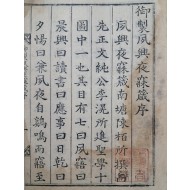 御製夙興夜寐箴序
夙興夜寐箴南塘陳栢所撰而
先正文純公李滉所進聖學十
圖中一也其目有七曰夙寤曰
晨興曰讀書曰應事曰日乾曰
夕惕曰兼夙夜自鷄鳴而寤至